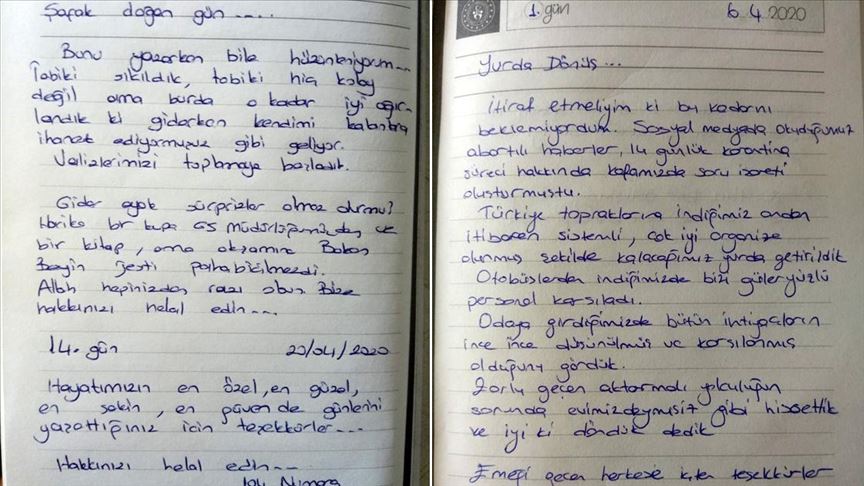 Şafak doğan gün .....
Bunu yazarken bile hüzünleniyorum...
Tabiki sıkıldık, tabiki hiç kolay
değil ama burda o kadar iyi ağır-
landık ki giderken kendimi
ihanet ediyormuşuz gibi geliyor.
Valizlerimizi toplamaya başladık.
Gider ayak sürprizler olmaz durmu?
Harika bir kupa GS müdürlüğümüzden ve
bir kitap, ama akşamına Bakan
Beyin jesti paha biçilmezdi.
Allah hepinizden razı olsun Bize
hakkınızı helal edin ....
14. gün 20/04/2020
Hayatımızın en özel, en güzel,
en sakin, en güvende günlerini
yaşattığınız için teşekkürler....
Hakkınızı helal edin ....
1. gün 6.4.2020
Yurda Dönüş...
İtiraf etmeliyim ki bu kadarını
beklemiyordum. Sosyal medyada okuduğumuz
abartılı haberler, 14 günlük karantina
süreci hakkında kafamızda soru işareti
oluşturmuştu.
Türkiye topraklarına indiğimiz andan
itibaren sistemli, çok iyi organize
olunmuş şekilde kalacağımız yurda getirildik
Otobüslerden indiğimizde bizi güleryüzlü
personel karşıladı.
Odaya girdiğimizde bütün ihtiyaçların
ince ince düşünülmüş ve karşılanmış
olduğunu gördük.
Zorlu geçen aktarmalı yolculuğun
sonunda evimizdeymişiz gibi hissettik
ve iyi ki döndük dedik
Emeği geçen herkese teşekkürler